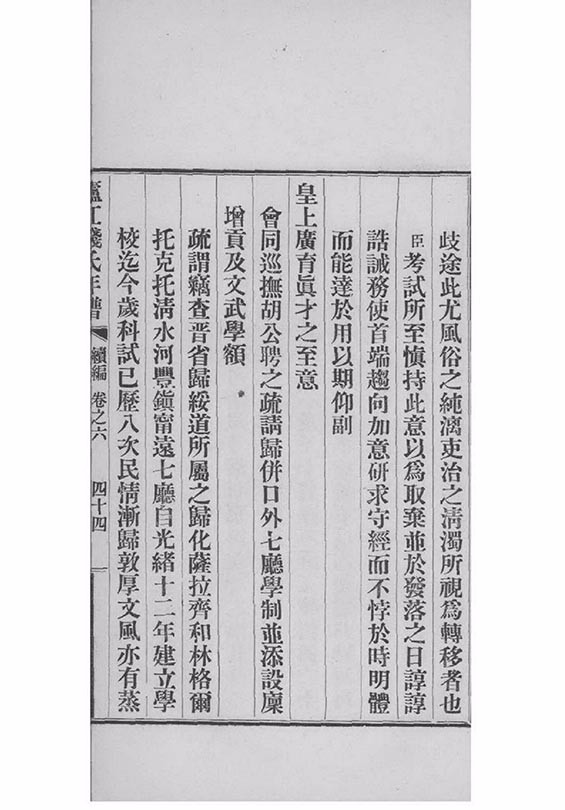 歧途此尤風俗之純漓吏治之淸濁所視爲轉移者也
臣考試所至愼持此意以爲取棄並於發落之日諄諄
誥誡務使首端趨向加意硏求守經而不悖於時明體
而能達於用以期仰副
皇上廣育眞才之至意
會同巡撫胡公聘之疏請歸併口外七廳學制並添設廩
增貢及文武學額
疏謂竊查晉省歸綏道所屬之歸化薩拉齊和林格爾
托克托淸水河豐鎭甯遠七廳自光緖十二年建立學
校迄今歲科試已歷八次民情漸歸敦厚文風亦有蒸
廬江錢氏年譜 續編 卷之六 四十四